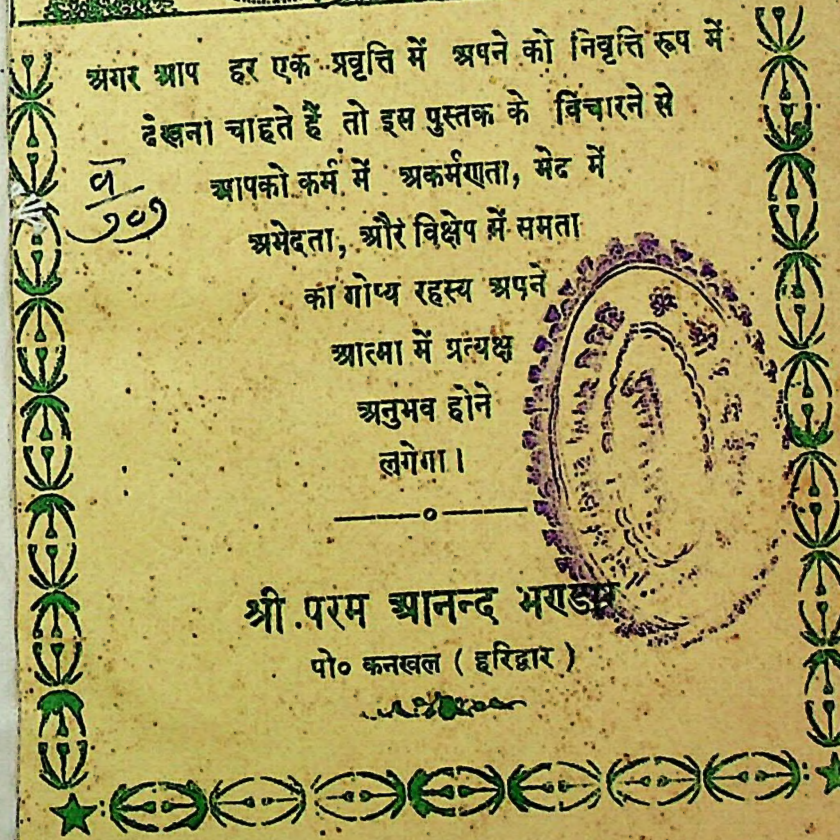 अगर आप हर एक प्रवृत्ति में अपने को निवृत्ति रूप में
देखना चाहते हैं तो इस पुस्तक के विचारने से
आपको कर्म में अकर्मणता, भेद में
अभेदता, और विक्षेप में समता
का गोप्य रहस्य अपने
आत्मा में प्रत्यक्ष
अनुभव होने
लगेगा।
श्री परम आनन्द भण्डार
पो० कनखल ( हरिद्वार )